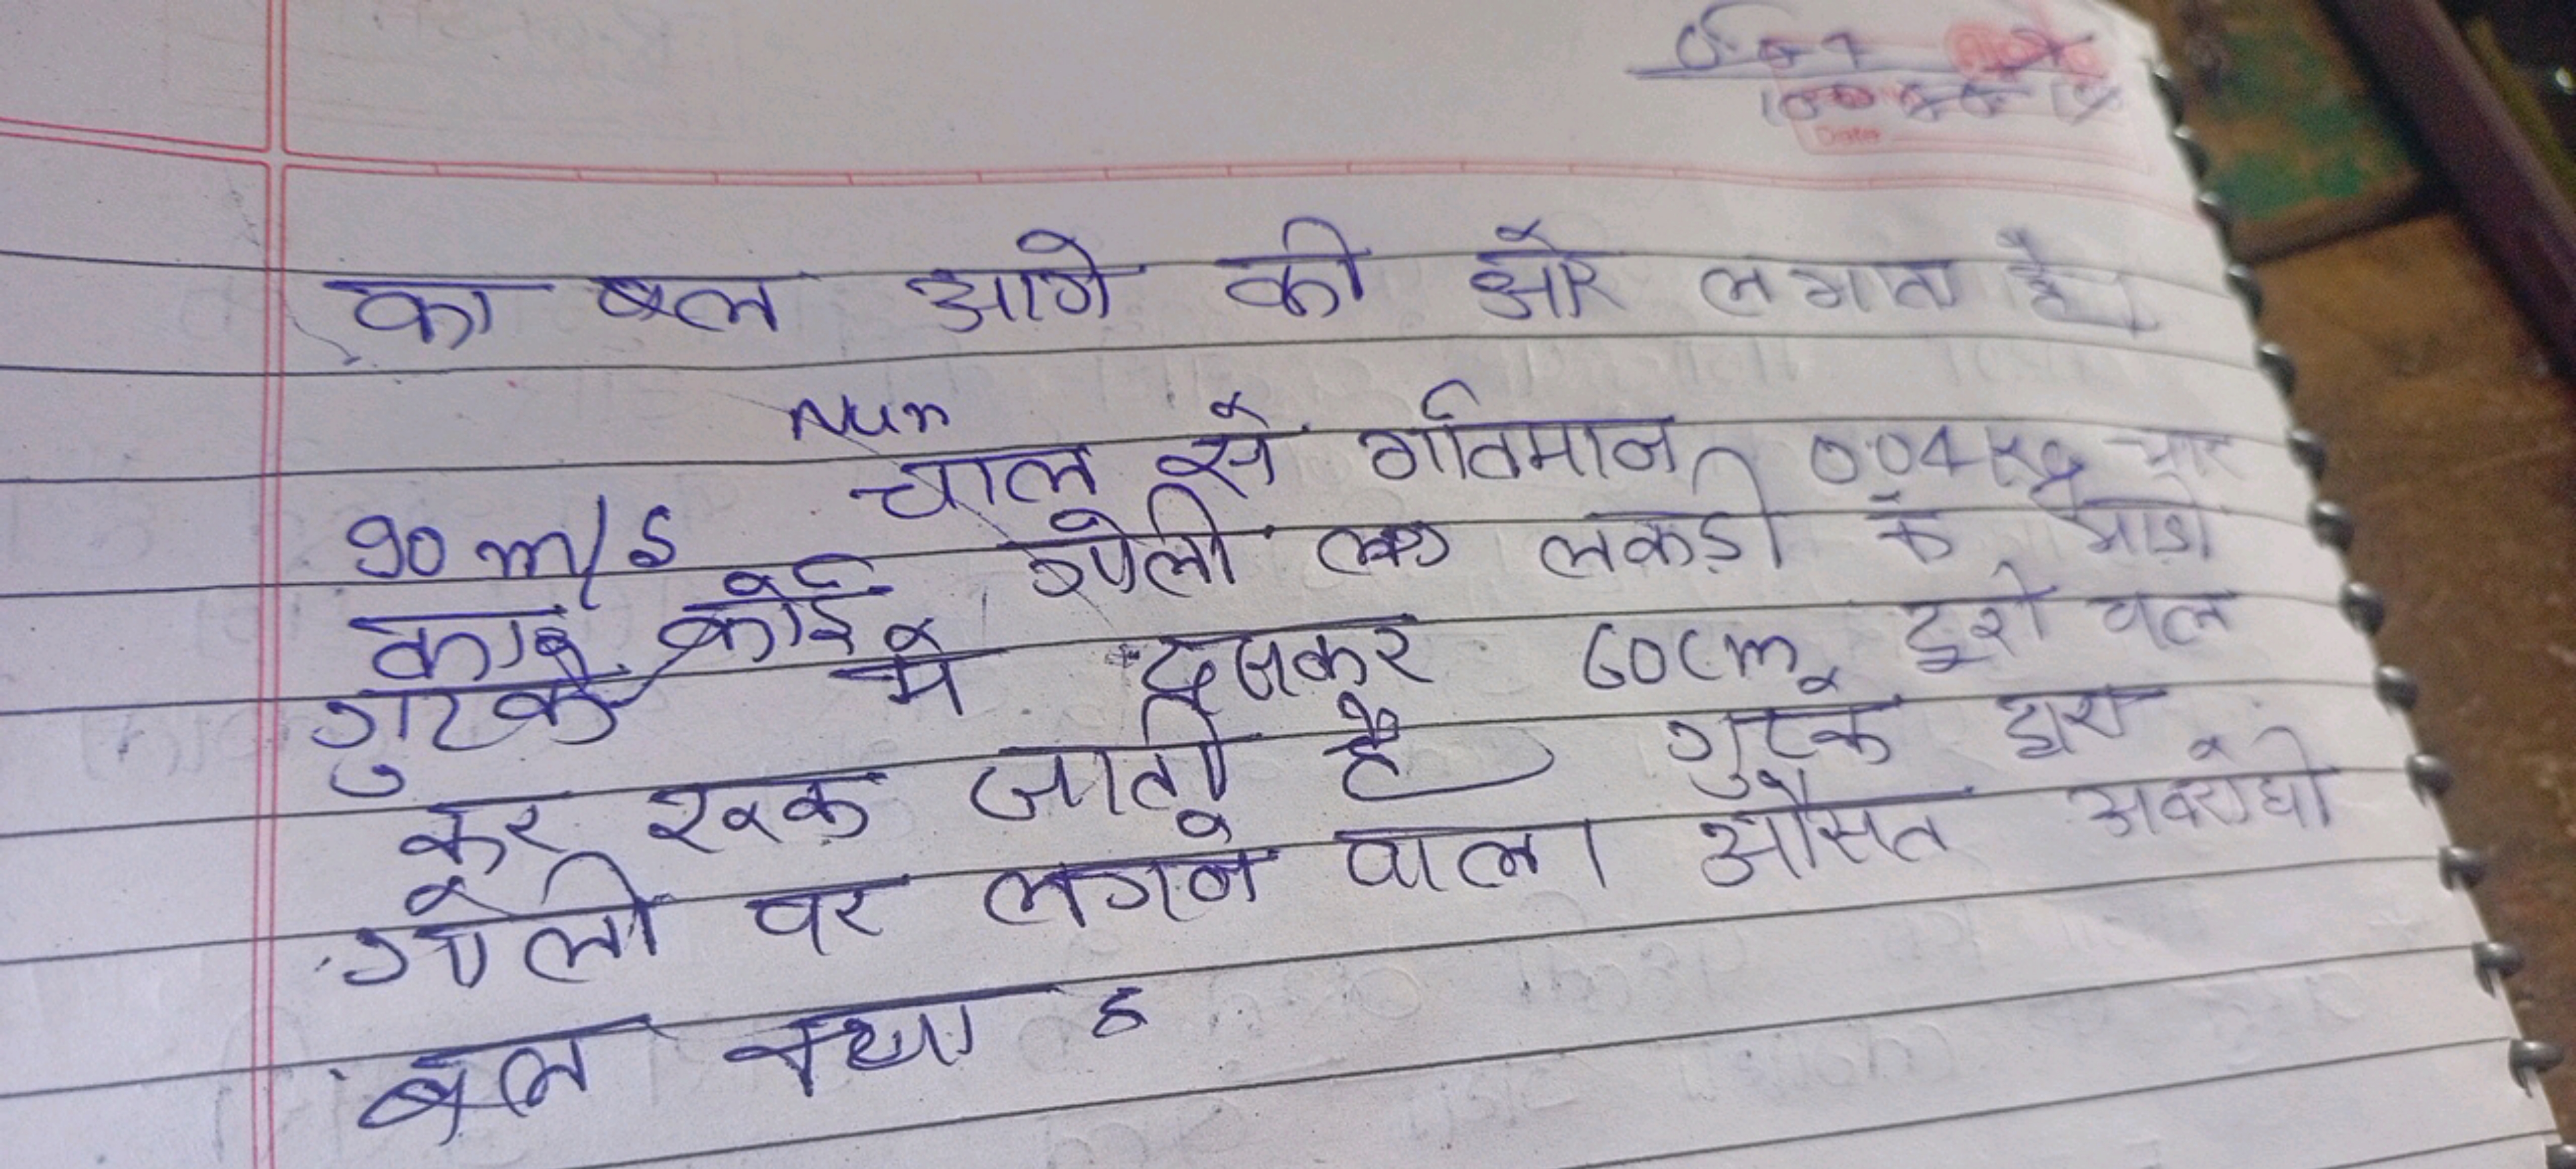 Date
का बल आगे की ओर लगाता है।
Num
90 m/s चाल से गतिमान 0.04 kg
कोई गोली लकड़ी के
गुटके में धसकर 60cm दूरी चल
कर रुक जाती है गुटके द्वारा
गोली पर लगने वाला औसत अवरोधी
बल क्या है